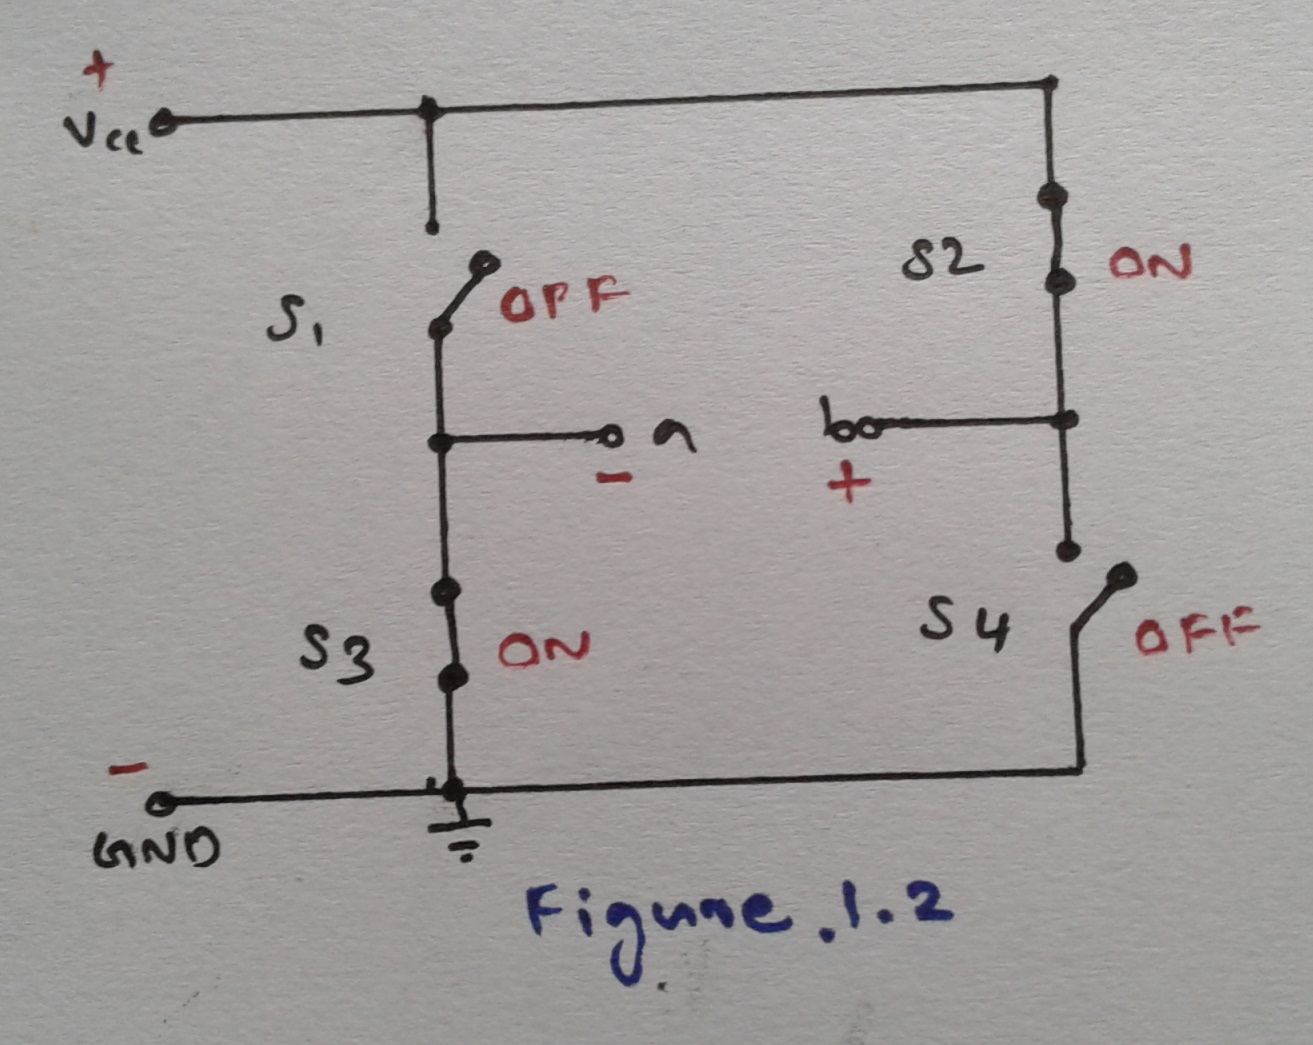 +
Vcc
S2 ON
S1 OFF
a
b
-
+
S3 ON
S4 OFF
-
GND
Figure.1.2